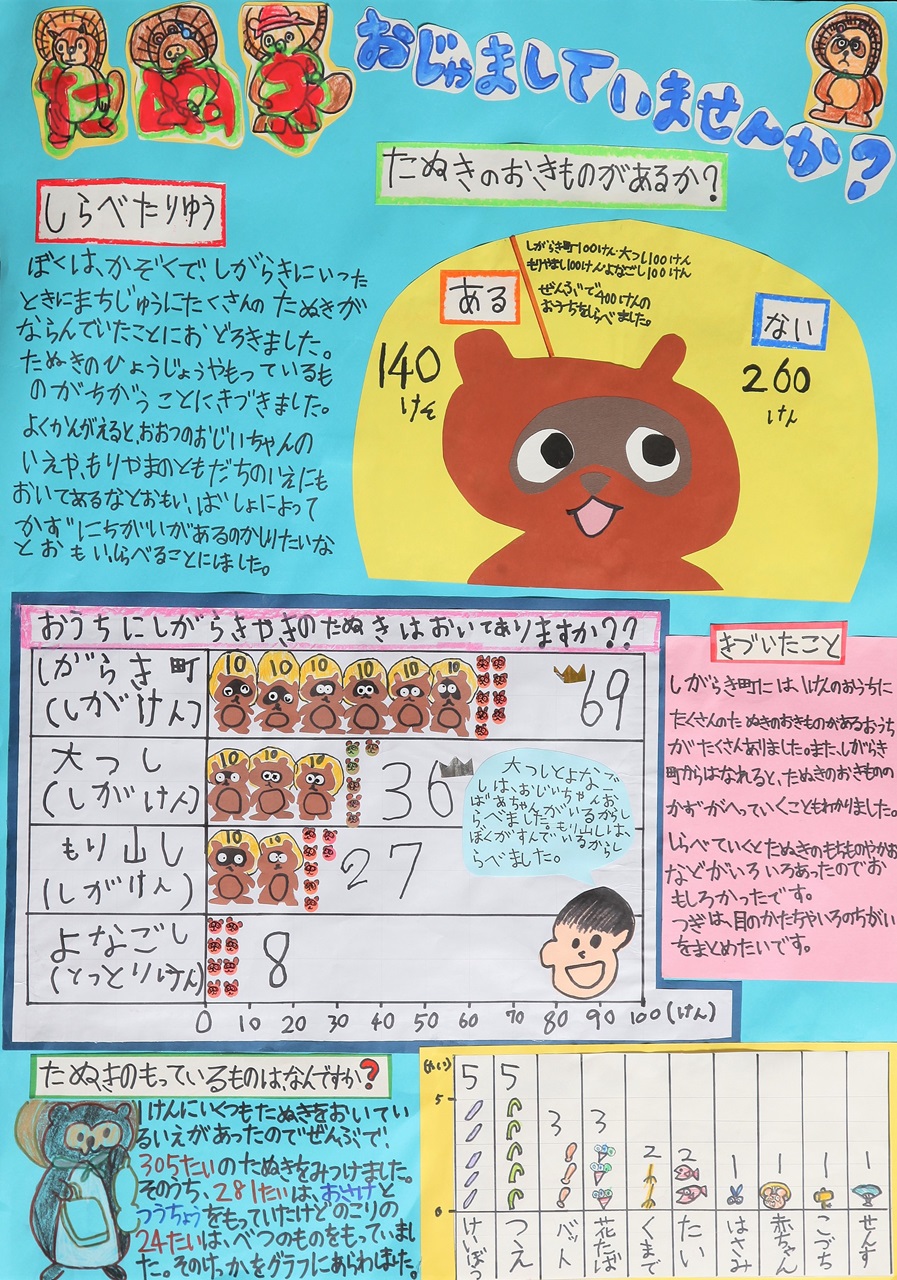 たぬき おじゃましていませんか?
たぬきのおきものがあるか?
しらべたりゆう
ぼくは、かぞくで、しがらきにいった
ときにまちじゅうにたくさんの たぬきが
ならんでいたことにおどろきました。
たぬきのひょうじょうやもっているも
のがちがうことにきづきました。
よくかんがえると、おおつのおじいちゃんの
いえや、もりやまのともだちのいえにも
おいてあるなとおもい、ばしょによって
かずにちがいがあるのかしりたいな
とおもい、しらべることにしました。
しがらき町100けん・大つし100けん
もりやまし100けん・よなごし100けん
ぜんぶで400けんの
おうちをしらべました。
ある
140
けん
ない
260
けん
おうちにしがらきやきのたぬきはおいてありますか??
しがらき町
(しがけん)
10 10 10 10 10 10
69
大つし
(しがけん)
10 10 10
36
もり山し
(しがけん)
10 10
27
よなごし
(とっとりけん)
8
0 10 20 30 40 50 60 70 80 90 100(けん)
大つしとよなご
しは、おじいちゃんお
ばあちゃんがいるからし
らべました。もり山しは、
ぼくがすんでいるからし
らべました。
きづいたこと
しがらき町には、1けんのおうちに
たくさんのたぬきのおきものがあるおうち
がたくさんありました。また、しがらき
町からはなれると、たぬきのおきものの
かずがへっていくこともわかりました。
しらべていくとたぬきのもちものやかお
などがいろいろあったのでお
もしろかったです。
つぎは、目のかたちやいろのちがい
をまとめたいです。
たぬきのもっているものは、なんですか?
1けんにいくつもたぬきをおいてい
るいえがあったのでぜんぶで、
305たいのたぬきをみつけました。
そのうち、281たいは、おさけと
つうちょうをもっていたけどのこりの
24たいは、べつのものをもっていまし
た。そのけっかをグラフにあらわしました。
5
0
5 5 3 3 2 2 1 1 1 1
けいぼう
つえ
バット
花たば
くまで
たい
はさみ
赤ちゃん
こづち
せんす